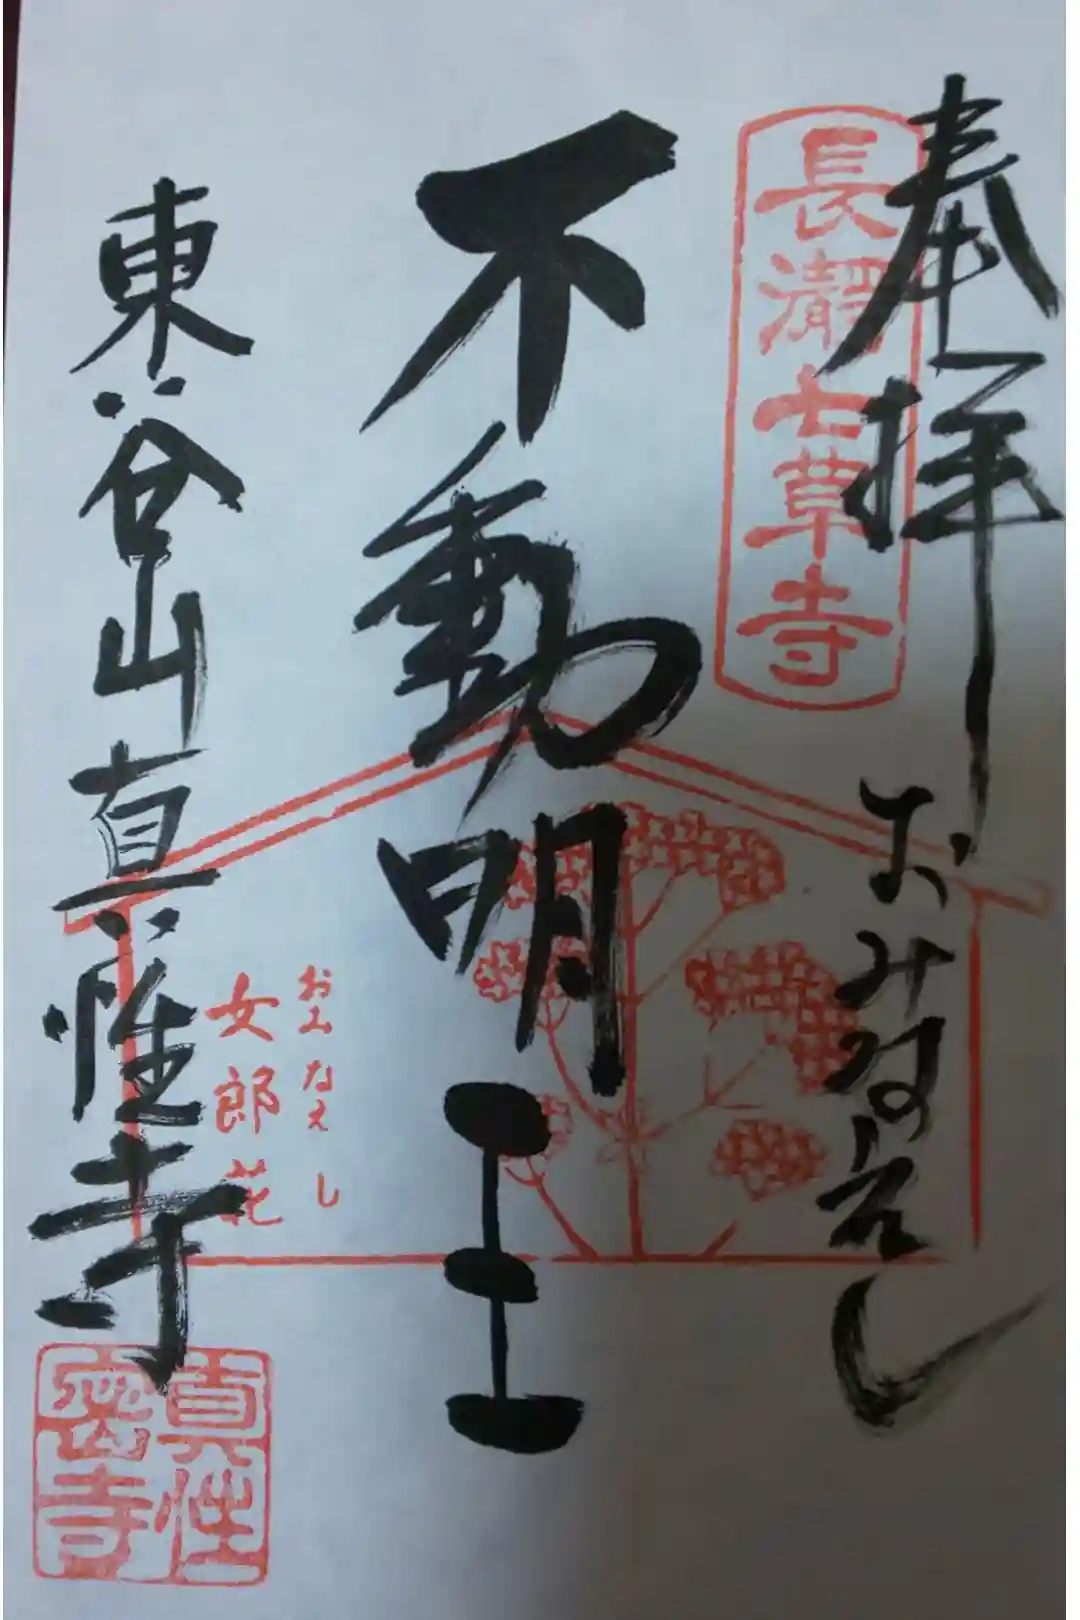 奉拝
おみなえし
長瀞七草寺
不動明王
おみなえし
女郎花
東谷山真性寺
真性
寺